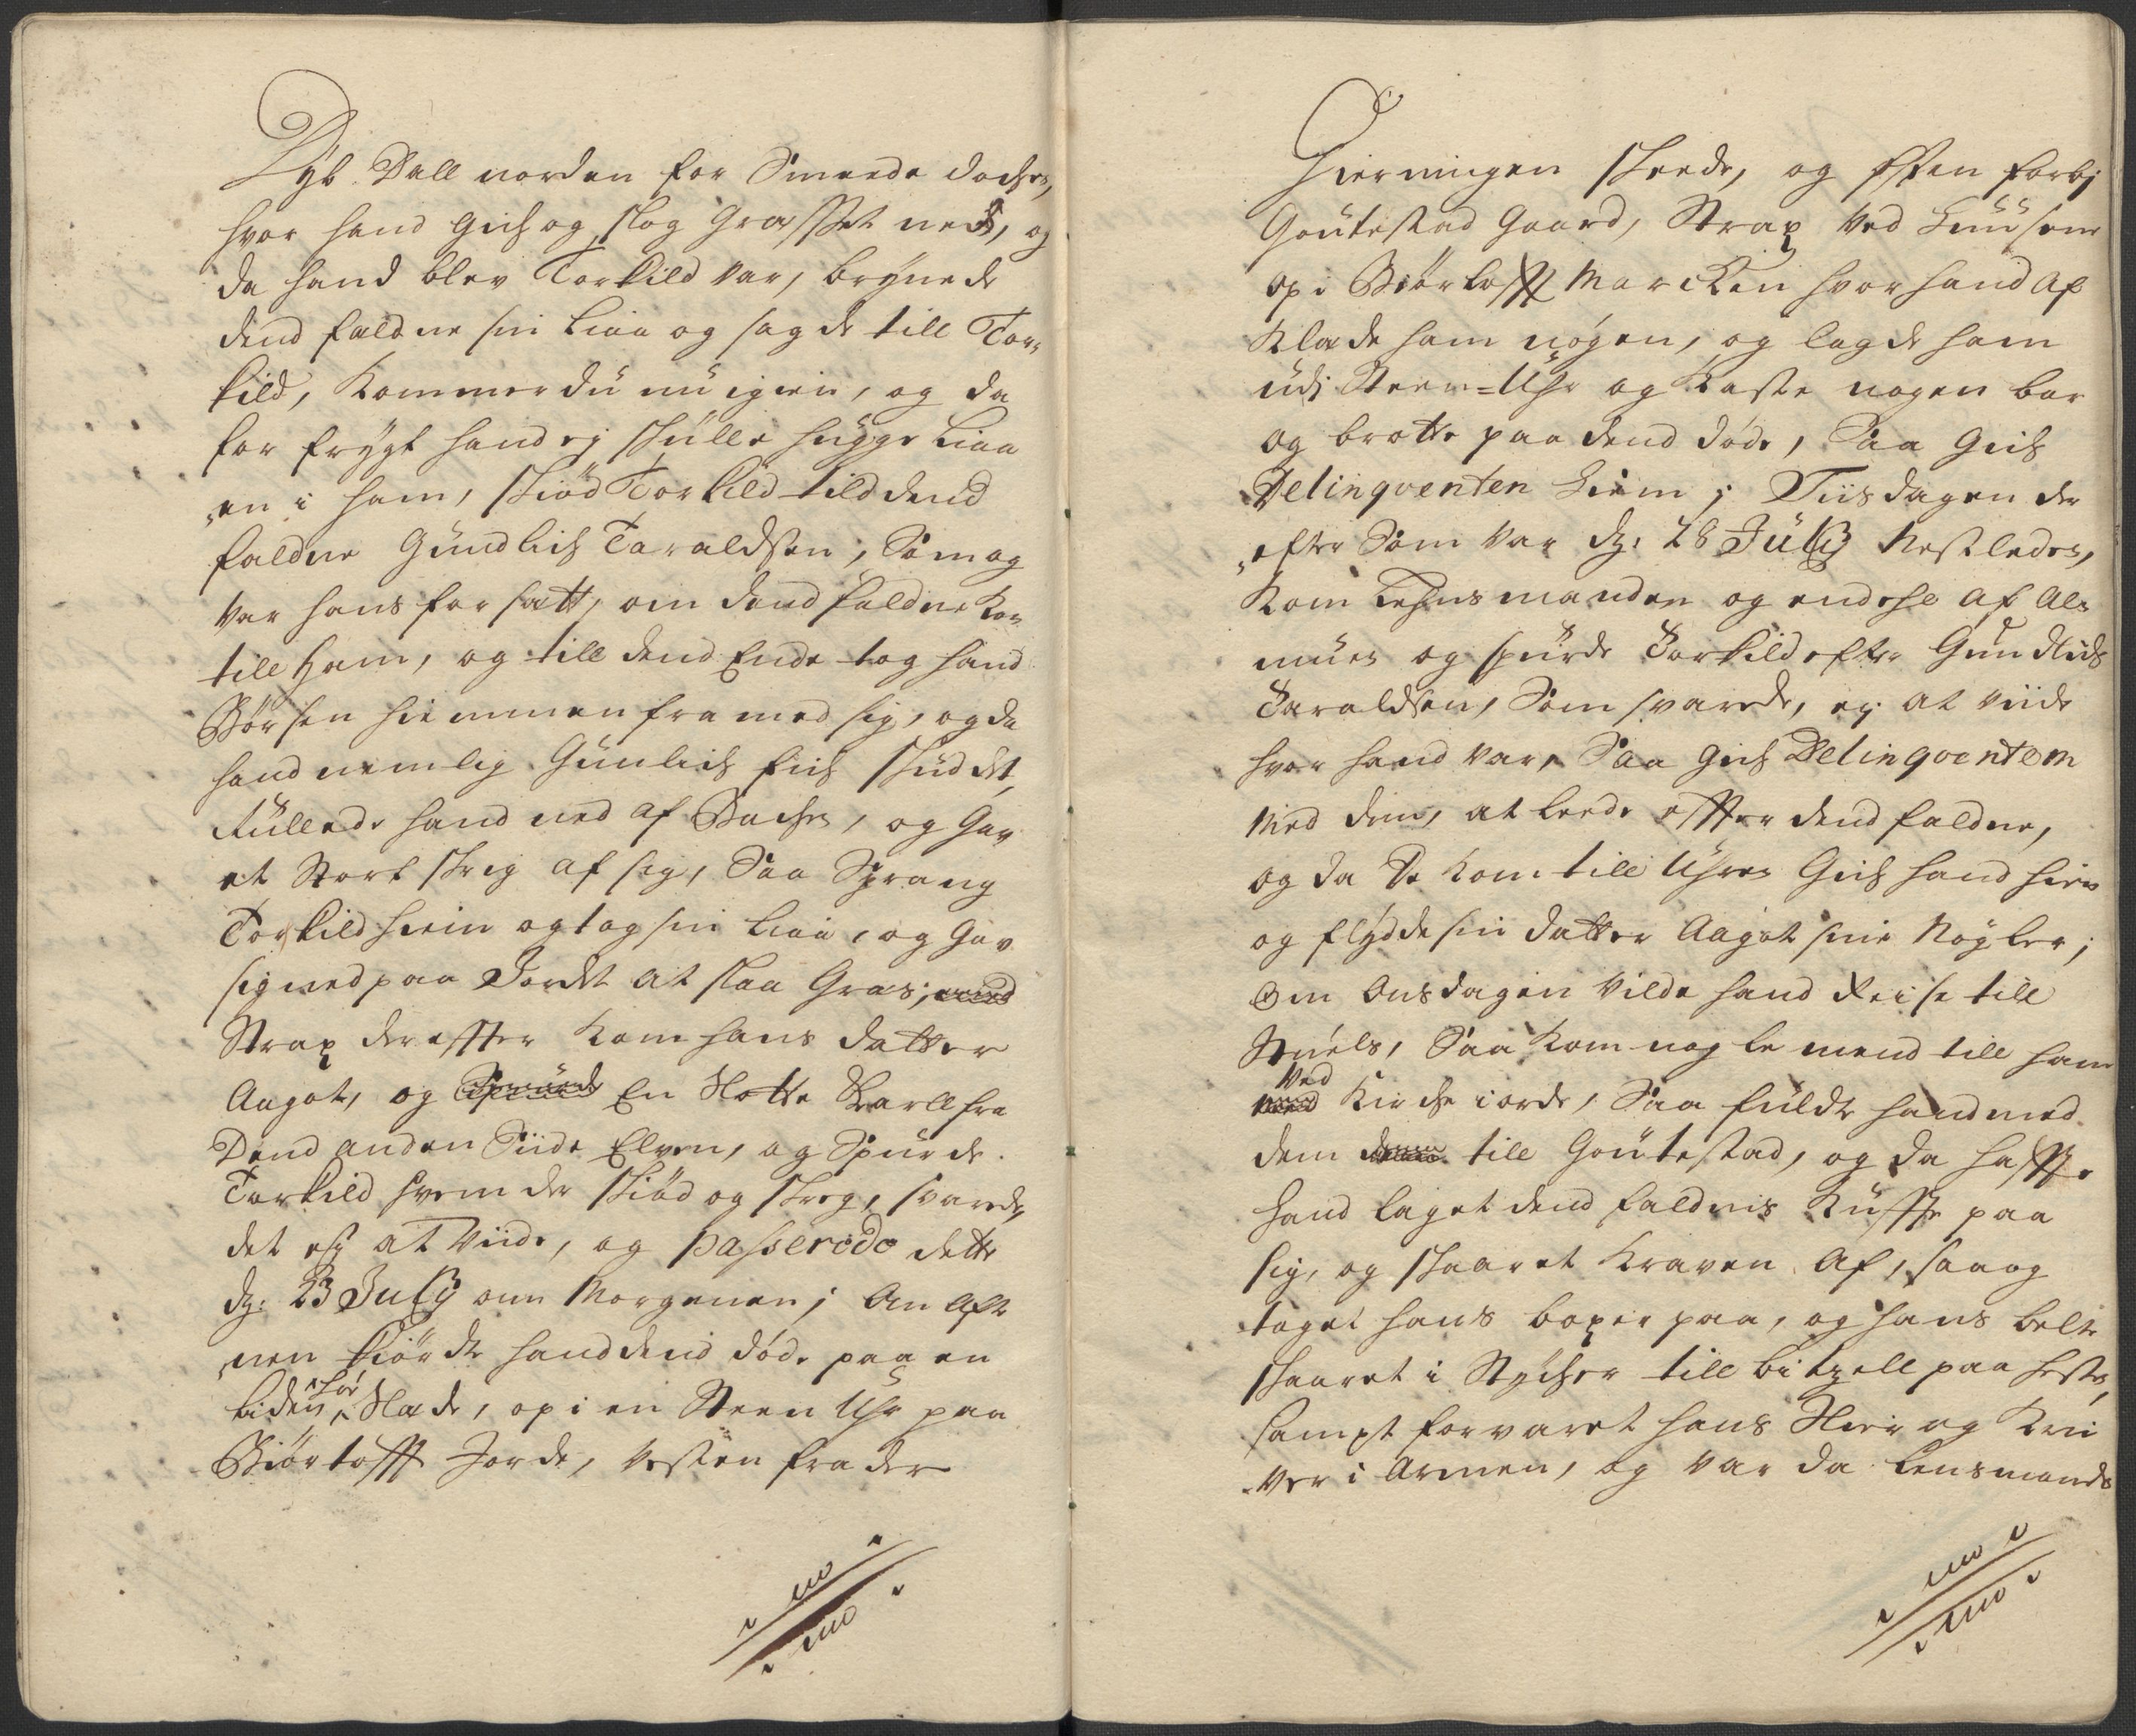 Dyb Dall norden for Smeede dochen,
hvor hand gich og slog Græsset ned, og
da hand blev Torkild var, brÿnede
dend faldne sin Liaa og sagde till Tor„
kild, kommer du nu igien, og da
for frÿgt hand ej skulle hugge Liaa
„en i ham, skiød Torkild till dend
faldne Gundlich Taraldsen, Som og
var hans forsatt, om dend faldne kom
till ham, og till dend Ende tog hand
Børsen hiemmen fra med sig, og da
hand nemlig Gunlich fich skuddet,
Rullede hand ned af Bachen, og Gav
et Stort skrig af sig, Saa Sprang
Torkild hiein og tog sin Liaa, og Gav
sig ned paa Jordet at slaa Græs;
Strax derefter kom hans datter
Aagot, og En Slotte Karll fra
Dend anden Siide Elven, og Spurde
Torkild hvem der skiød og skreg, svarede,
det ej at viide, og passerede dette
dg: 23 Julÿ om Morgenen; Om Aft
„nen kiørde hand dend døde paa en
liden Slæde, op i en Steen Uhr paa
Biørtofft Jorde, vesten fra der
Gierningen skeede, og Østen forbj
Goutestad Gaard, Strax ved
op i Biørtofft Marcken hvor hand af
klæde ham nøgen, og lagde ham
udj Steen=Uhr og kaste nogen bar
og brotte paa dend døde, Saa gich
Delinqventen hiem; Tiisdagen der
„efter Som var dg: 28 Julÿ Nestleden,
kom Lehnsmanden og endehl af Al„
muen og spurde Torkild efter Gundlich
Taraldsen, Som svarede, ej at viide
hvor hand var, Saa gich Delinqventem
med dem, at leede efter dend faldne,
og da De kom till Uhren Gich hand hiem
og flÿdde sin datter Aagot sine Nøgler;
Om Onsdagen vilde hand Reise till
Saa kom nogle mend till ham
ved Kirche iorde, Saa fuldte hand med
dem till Goutestad, og da hafte
hand taget dend faldnis kuffte paa
sig, og skaaret kraven af, saa og
taget hans boxer paa, og hans belte
skaaret i Stÿcher till bitzell paa hesten,
sampt forvaret hans Sliir og kni
„ver i Armen, og var da Lensmands